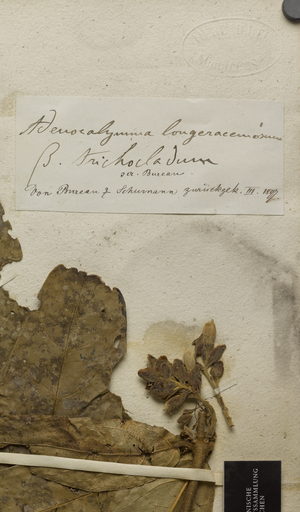 Adenocalymma longeracemosum
β. trichocladum
scr. Bureau
Von Bureau & Schumann zurückgek. III. 1897
NISCHE
SSAMMLUNG
CHEN